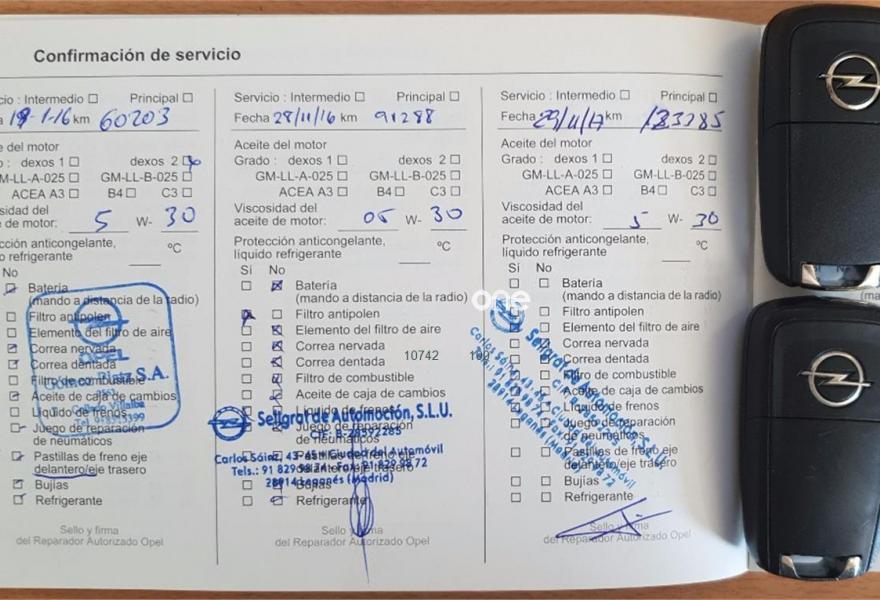 Confirmación de servicio
cio : Intermedio Principal
19-1-16 km 60203
Aceite del motor
: dexos 1 dexos 2
GM-LL-A-025 GM-LL-B-025
ACEA A3 B4 C3
sidad del
e de motor: 5 W- 30
cción anticongelante,
o refrigerante ºC
No
Batería
(mando a distancia de la radio)
Filtro antipolen
Elemento del filtro de aire
Correa nervada
Correa dentada
Filtro de combustible
Aceite de caja de cambios
Líquido de frenos
Juego de reparación
de neumáticos
Pastillas de freno eje
delantero/eje trasero
Bujías
Refrigerante
Sello y firma
del Reparador Autorizado Opel
OPEL
S.A.
Servicio : Intermedio Principal
Fecha 28/11/16 km 91288
Aceite del motor
Grado : dexos 1 dexos 2
GM-LL-A-025 GM-LL-B-025
ACEA A3 B4 C3
Viscosidad del
aceite de motor: 05 W- 30
Protección anticongelante,
líquido refrigerante ºC
Sí No
Batería
(mando a distancia de la radio)
Filtro antipolen
Elemento del filtro de aire
Correa nervada
Correa dentada
Filtro de combustible
Aceite de caja de cambios
Líquido de frenos
Juego de reparación
de neumáticos
Pastillas de freno eje
delantero/eje trasero
Bujías
Refrigerante
Sello y firma
del Reparador Autorizado Opel
Sellgrat de Automoción, S.L.U.
CIF: B-28892285
Carlos Sáinz, 43-45 - Ciudad del Automóvil
Tels.: 91 829 98 74 - Fax: 91 829 98 72
28914 Leganés (Madrid)
Servicio : Intermedio Principal
Fecha 29/11/17 km 123285
Aceite del motor
Grado : dexos 1 dexos 2
GM-LL-A-025 GM-LL-B-025
ACEA A3 B4 C3
Viscosidad del
aceite de motor: 5 W- 30
Protección anticongelante,
líquido refrigerante ºC
Sí No
Batería
(mando a distancia de la radio)
Filtro antipolen
Elemento del filtro de aire
Correa nervada
Correa dentada
Filtro de combustible
Aceite de caja de cambios
Líquido de frenos
Juego de reparación
de neumáticos
Pastillas de freno eje
delantero/eje trasero
Bujías
Refrigerante
Sello y firma
del Reparador Autorizado Opel
Sellgrat de Automoción, S.L.U.
one
10742
(ma